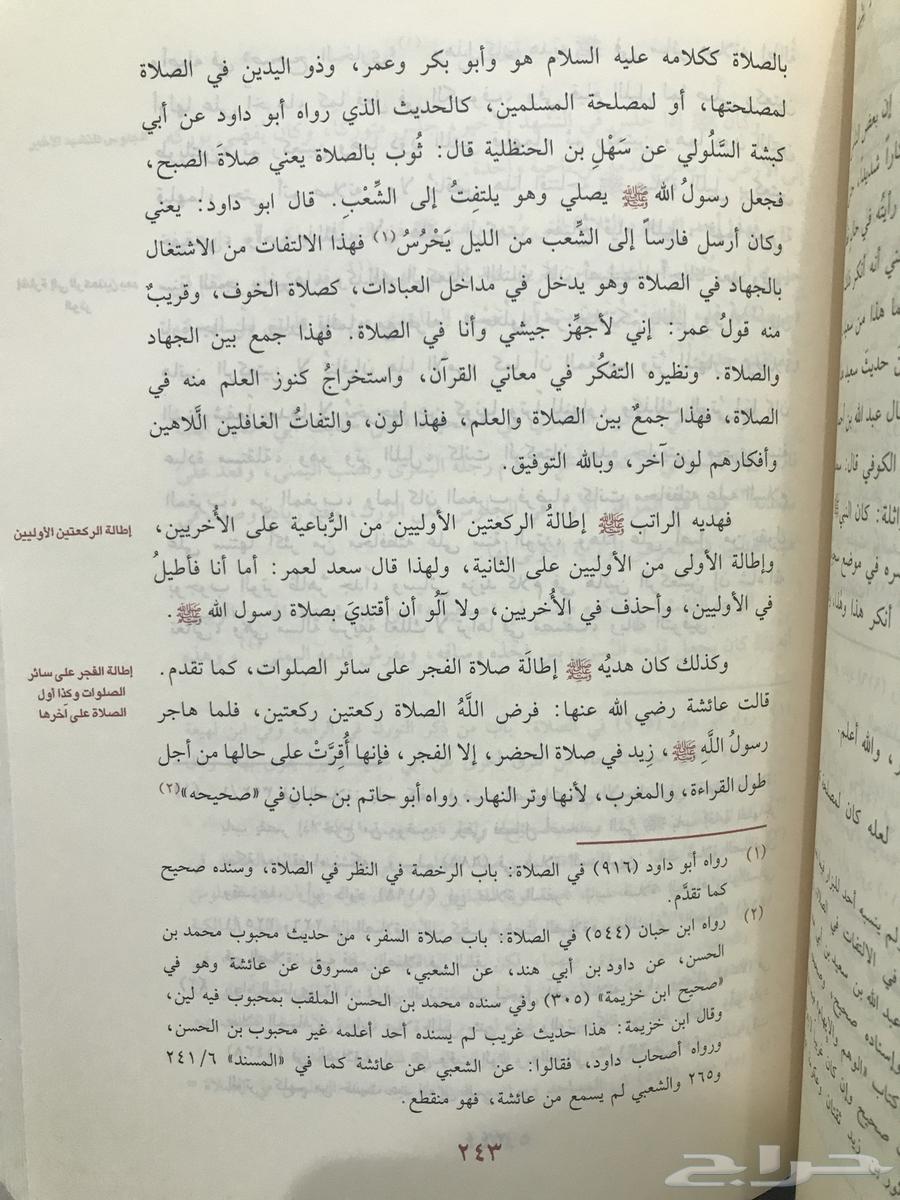 بالصلاة ككلامه عليه السلام هو وأبو بكر وعمر، وذو اليدين في الصلاة
لمصلحتها، أو لمصلحة المسلمين، كالحديث الذي رواه أبو داود عن أبي
كبشة السَّلُولي عن سَهْلِ بن الحنظلية قال: ثُوب بالصلاة يعني صلاةَ الصبح،
فجعل رسولُ الله ﷺ يصلي وهو يلتفِتُ إلى الشِّعْبِ. قال ابو داود: يعني
وكان أرسل فارساً إلى الشِّعب من الليل يَحْرُسُ(١) فهذا الالتفات من الاشتغال
بالجهاد في الصلاة وهو يدخل في مداخل العبادات، كصلاة الخوف، وقريبٌ
منه قولُ عمر: إني لأجهِّز جيشي وأنا في الصلاة. فهذا جمع بين الجهاد
والصلاة. ونظيره التفكُر في معاني القرآن، واستخراجُ كنوز العلم منه في
الصلاة، فهذا جمعٌ بين الصلاة والعلم، فهذا لون، والتفاتُ الغافلين اللَّاهين
وأفكارهم لون آخر، وبالله التوفيق.
إطالة الركعتين الأوليين
فهديه الراتب ﷺ إطالةُ الركعتين الأوليين من الرُّباعية على الأُخريين،
وإطالة الأولى من الأوليين على الثانية، ولهذا قال سعد لعمر: أما أنا فأطيلُ
في الأوليين، وأحذف في الأُخريين، ولا آلُو أن أقتديَ بصلاة رسول الله ﷺ.
إطالة الفجر على سائر
الصلوات وكذا أول
الصلاة على آخرها
وكذلك كان هديُه ﷺ إطالَة صلاة الفجر على سائر الصلوات، كما تقدم.
قالت عائشة رضي الله عنها: فرض اللَّهُ الصلاة ركعتين ركعتين، فلما هاجر
رسولُ اللَّهِ ﷺ، زِيد في صلاة الحضر، إلا الفجر، فإنها أُقِرَّتْ على حالها من أجل
طول القراءة، والمغرب، لأنها وتر النهار. رواه أبو حاتم بن حبان في «صحيحه»(٢)
(١) رواه أبو داود (٩١٦) في الصلاة: باب الرخصة في النظر في الصلاة، وسنده صحيح
كما تقدَّم.
(٢) رواه ابن حبان (٥٤٤) في الصلاة: باب صلاة السفر، من حديث محبوب محمد بن
الحسن، عن داود بن أبي هند، عن الشعبي، عن مسروق عن عائشة وهو في
«صحيح ابن خزيمة» (٣٠٥) وفي سنده محمد بن الحسن الملقب بمحبوب فيه لين،
وقال ابن خزيمة: هذا حديث غريب لم يسنده أحد أعلمه غير محبوب بن الحسن،
ورواه أصحاب داود، فقالوا: عن الشعبي عن عائشة كما في «المسند» ٢٤١/٦
و٢٦٥ والشعبي لم يسمع من عائشة، فهو منقطع.
٢٤٣
حراج